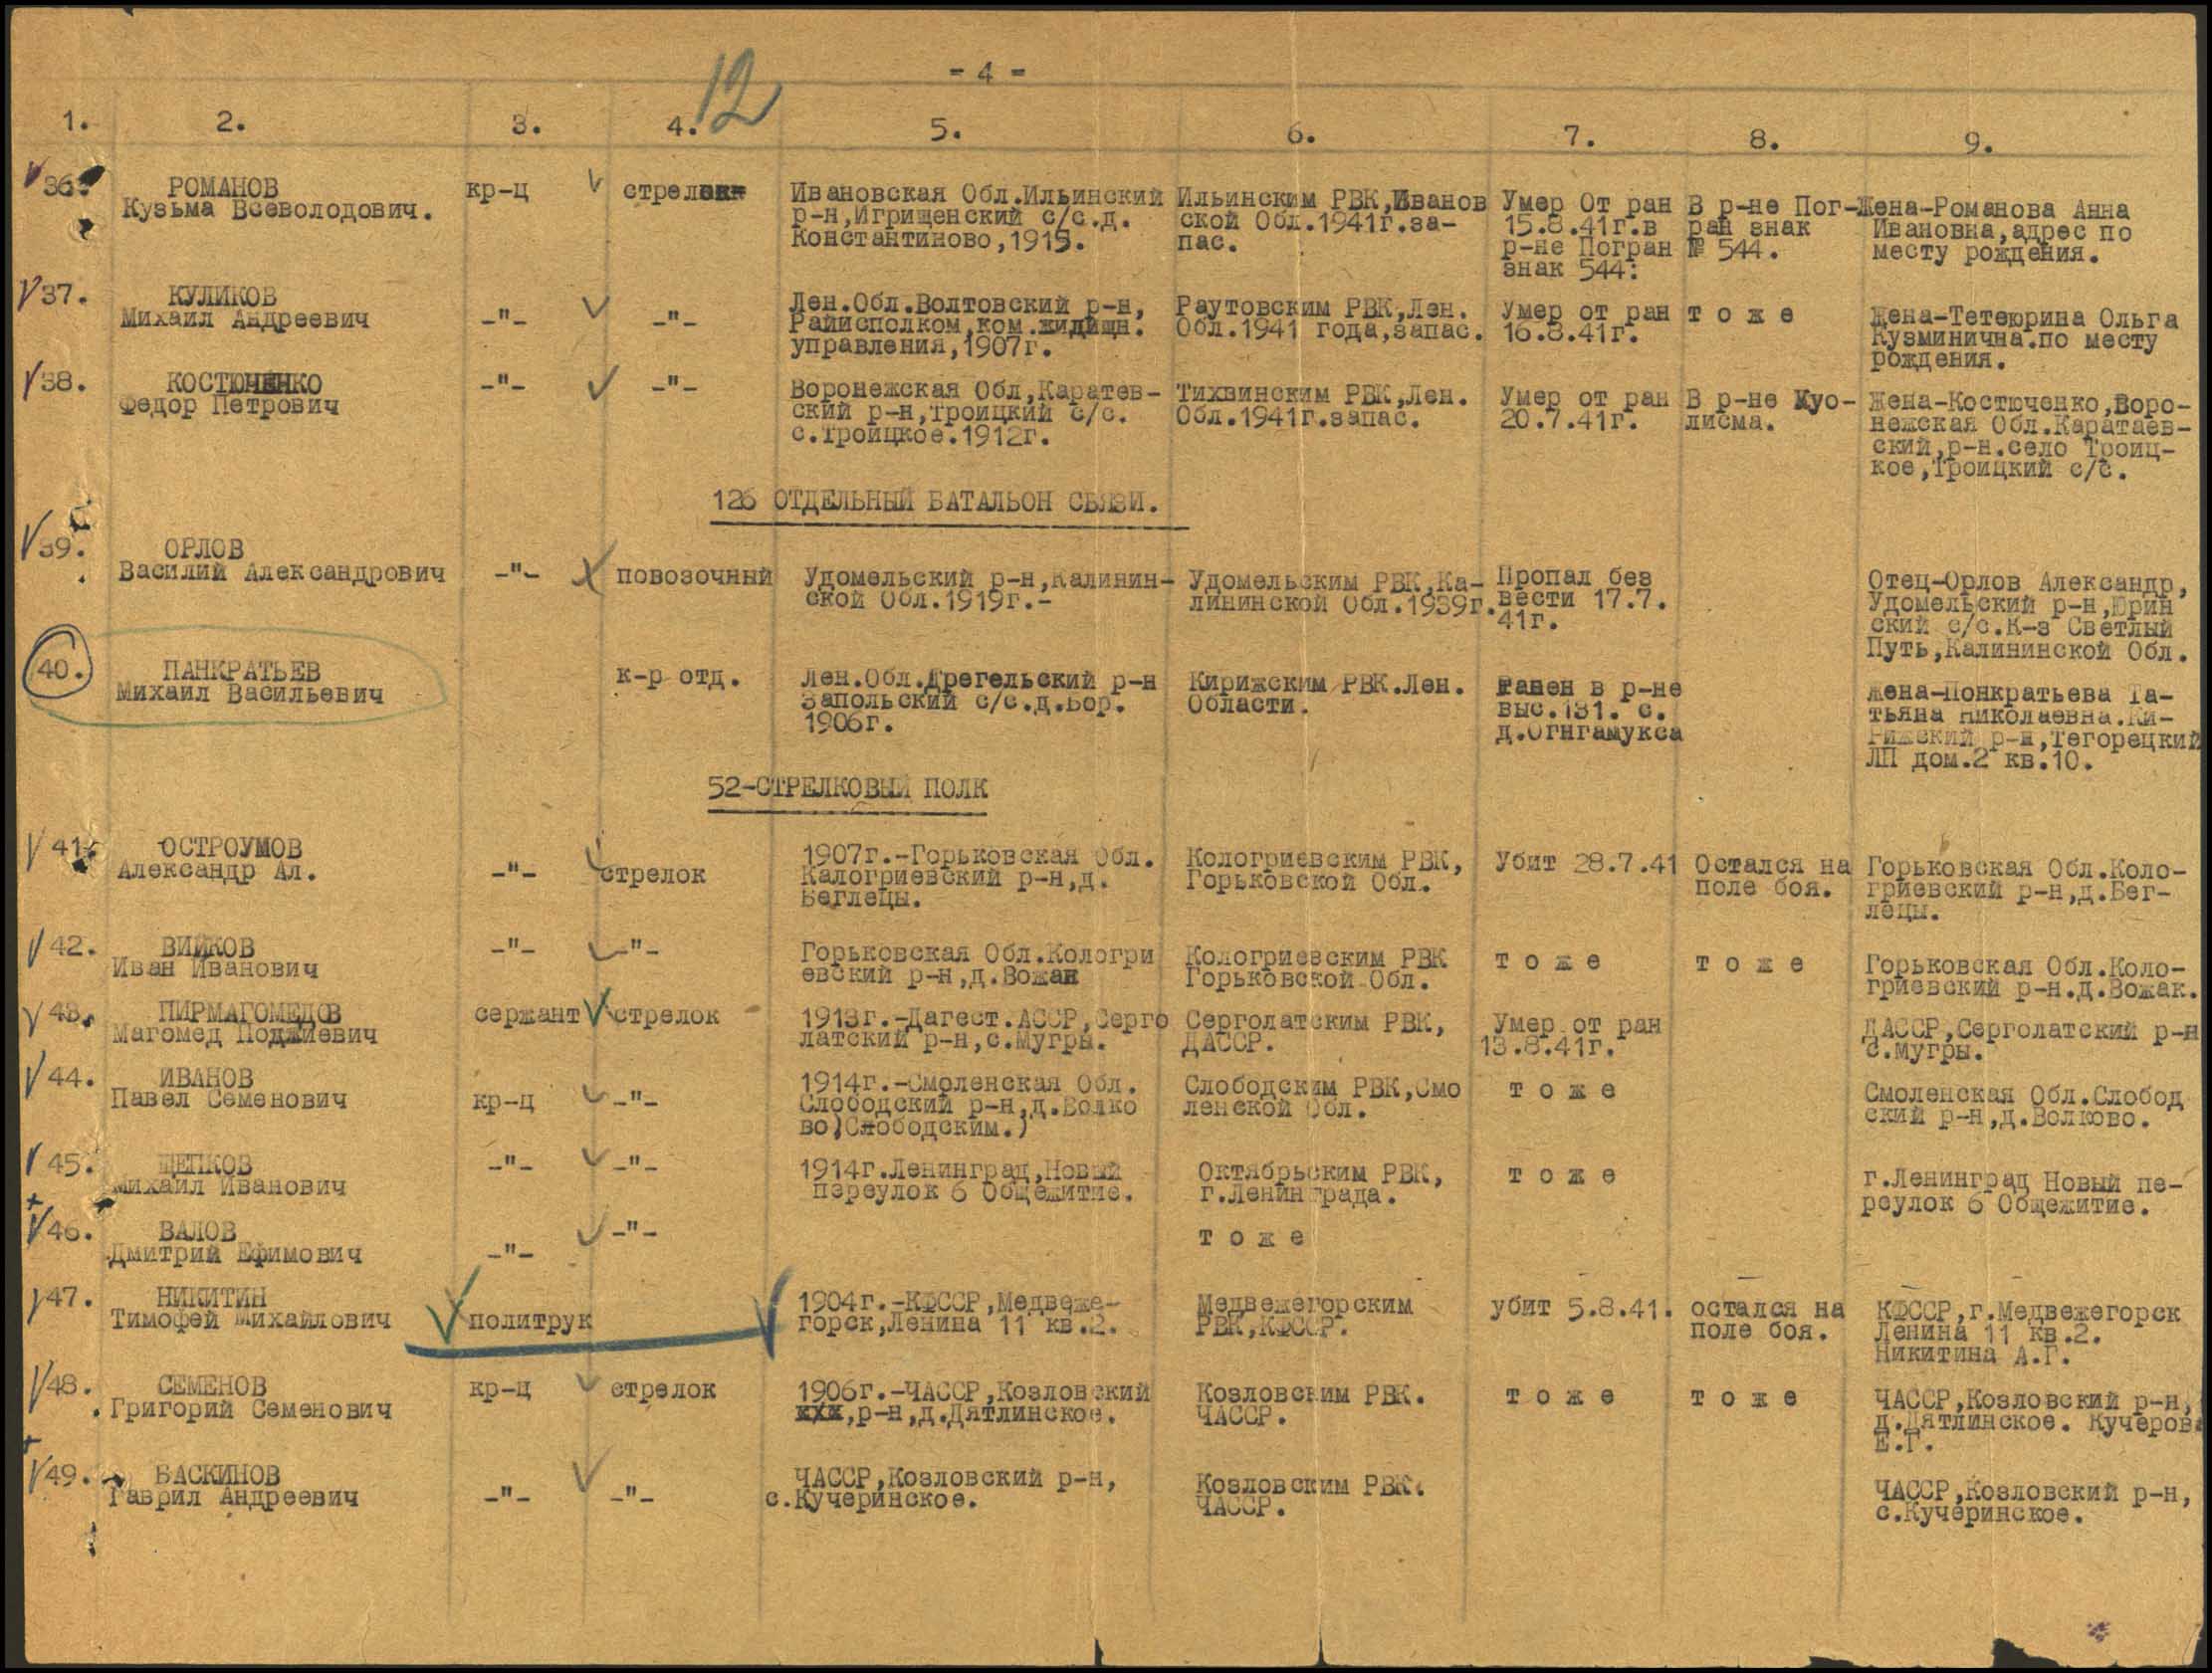 - 4 -
12
1. 2. 3. 4. 5. 6. 7. 8. 9.
36. РОМАНОВ
Кузьма Всеволодович.
кр-ц
стрелок
Ивановская Обл.Ильинский
р-н,Игрищенский с/с.д.
Константиново,1915.
Ильинским РВК,Иванов
ской Обл.1941г.за-
пас.
Умер От ран
15.8.41г.в
р-не Погран
знак 544:
В р-не Пог-
ран знак
№ 544.
Жена-Романова Анна
Ивановна,адрес по
месту рождения.
37. КУЛИКОВ
Михаил Андреевич
-"-
-"-
Лен.Обл.Волтовский р-н,
Райисполком,ком.жидищн.
управления,1907г.
Раутовским РВК,Лен.
Обл.1941 года,запас.
Умер от ран
16.8.41г.
т о ж е
Жена-Тетеюрина Ольга
Кузминична.по месту
рождения.
38. КОСТЮЧЕНКО
Федор Петрович
-"-
-"-
Воронежская Обл,Каратев-
ский р-н,Троицкий с/с.
с.Троицкое.1912г.
Тихвинским РВК,Лен.
Обл.1941г.запас.
Умер от ран
20.7.41г.
В р-не Куо-
лисма.
Жена-Костюченко,Воро-
нежская Обл.Каратаев-
ский,р-н.село Троиц-
кое,Троицкий с/с.
126 ОТДЕЛЬНЫЙ БАТАЛЬОН СВЯЗИ.
39. ОРЛОВ
Василий Александрович
-"-
повозочный
Удомельский р-н,Калинин-
ской Обл.1919г.-
Удомельским РВК,Ка-
лининской Обл.1939г.
Пропал без
вести 17.7.
41г.
Отец-Орлов Александр,
Удомельский р-н,Юрин
ский с/с.К-з Светлый
Путь,Калининской Обл.
40. ПАНКРАТЬЕВ
Михаил Васильевич
к-р отд.
Лен.Обл.Дрегельский р-н
Запольский с/с.д.Бор.
1906г.
Кирижским РВК.Лен.
Области.
Ранен в р-не
выс.131. с.
д.Огнгамукса
Жена-Понкратьева Та-
тьяна Николаевна.Ки-
рижский р-н,Тегорецкий
ЛП дом.2 кв.10.
52-СТРЕЛКОВЫЙ ПОЛК
41. ОСТРОУМОВ
Александр Ал.
-"-
стрелок
1907г.-Горьковская Обл.
Калогриевский р-н,д.
Беглецы.
Кологриевским РВК,
Горьковской Обл.
Убит 28.7.41
Остался на
поле боя.
Горьковская Обл.Коло-
гриевский р-н,д.Бег-
лецы.
42. ВИЙКОВ
Иван Иванович
-"-
-"-
Горьковская Обл.Кологри
евский р-н,д.Вожак
Кологриевским РВК
Горьковской Обл.
т о ж е
т о ж е
Горьковская Обл.Коло-
гриевский р-н.д.Вожак.
43. ПИРМАГОМЕДОВ
Магомед Поджиевич
сержант
стрелок
1913г.-Дагест.АССР,Серго
латский р-н,с.Мугры.
Серголатским РВК,
ДАССР.
Умер от ран
13.8.41г.
ДАССР,Серголатский р-н
с.Мугры.
44. ИВАНОВ
Павел Семенович
кр-ц
-"-
1914г.-Смоленская Обл.
Слободский р-н,д.Волко
во)Слободским.)
Слободским РВК,Смо
ленской Обл.
т о ж е
Смоленская Обл.Слобод
ский р-н,д.Волково.
45. ЩЕПКОВ
Михаил Иванович
-"-
-"-
1914г.Ленинград,Новый
переулок 6 Общежитие.
Октябрьским РВК,
г.Ленинграда.
т о ж е
г.Ленинград Новый пе-
реулок 6 Общежитие.
46. ВАЛОВ
Дмитрий Ефимович
-"-
-"-
т о ж е
47. НИКИТИН
Тимофей Михайлович
политрук
1904г.-КФССР,Медвеже-
горск,Ленина 11 кв.2.
Медвежегорским
РВК,КФССР.
убит 5.8.41.
остался на
поле боя.
КФССР,г.Медвежегорск
Ленина 11 кв.2.
Никитина А.Г.
48. СЕМЕНОВ
Григорий Семенович
кр-ц
стрелок
1906г.-ЧАССР,Козловский
ххх,р-н,д.Дятлинское.
Козловским РВК.
ЧАССР.
т о ж е
т о ж е
ЧАССР,Козловский р-н,
д.Дятлинское. Кучерова
Е.Г.
49. БАСКИНОВ
Гаврил Андреевич
-"-
-"-
ЧАССР,Козловский р-н,
с.Кучеринское.
Козловским РВК.
ЧАССР.
ЧАССР,Козловский р-н,
с.Кучеринское.